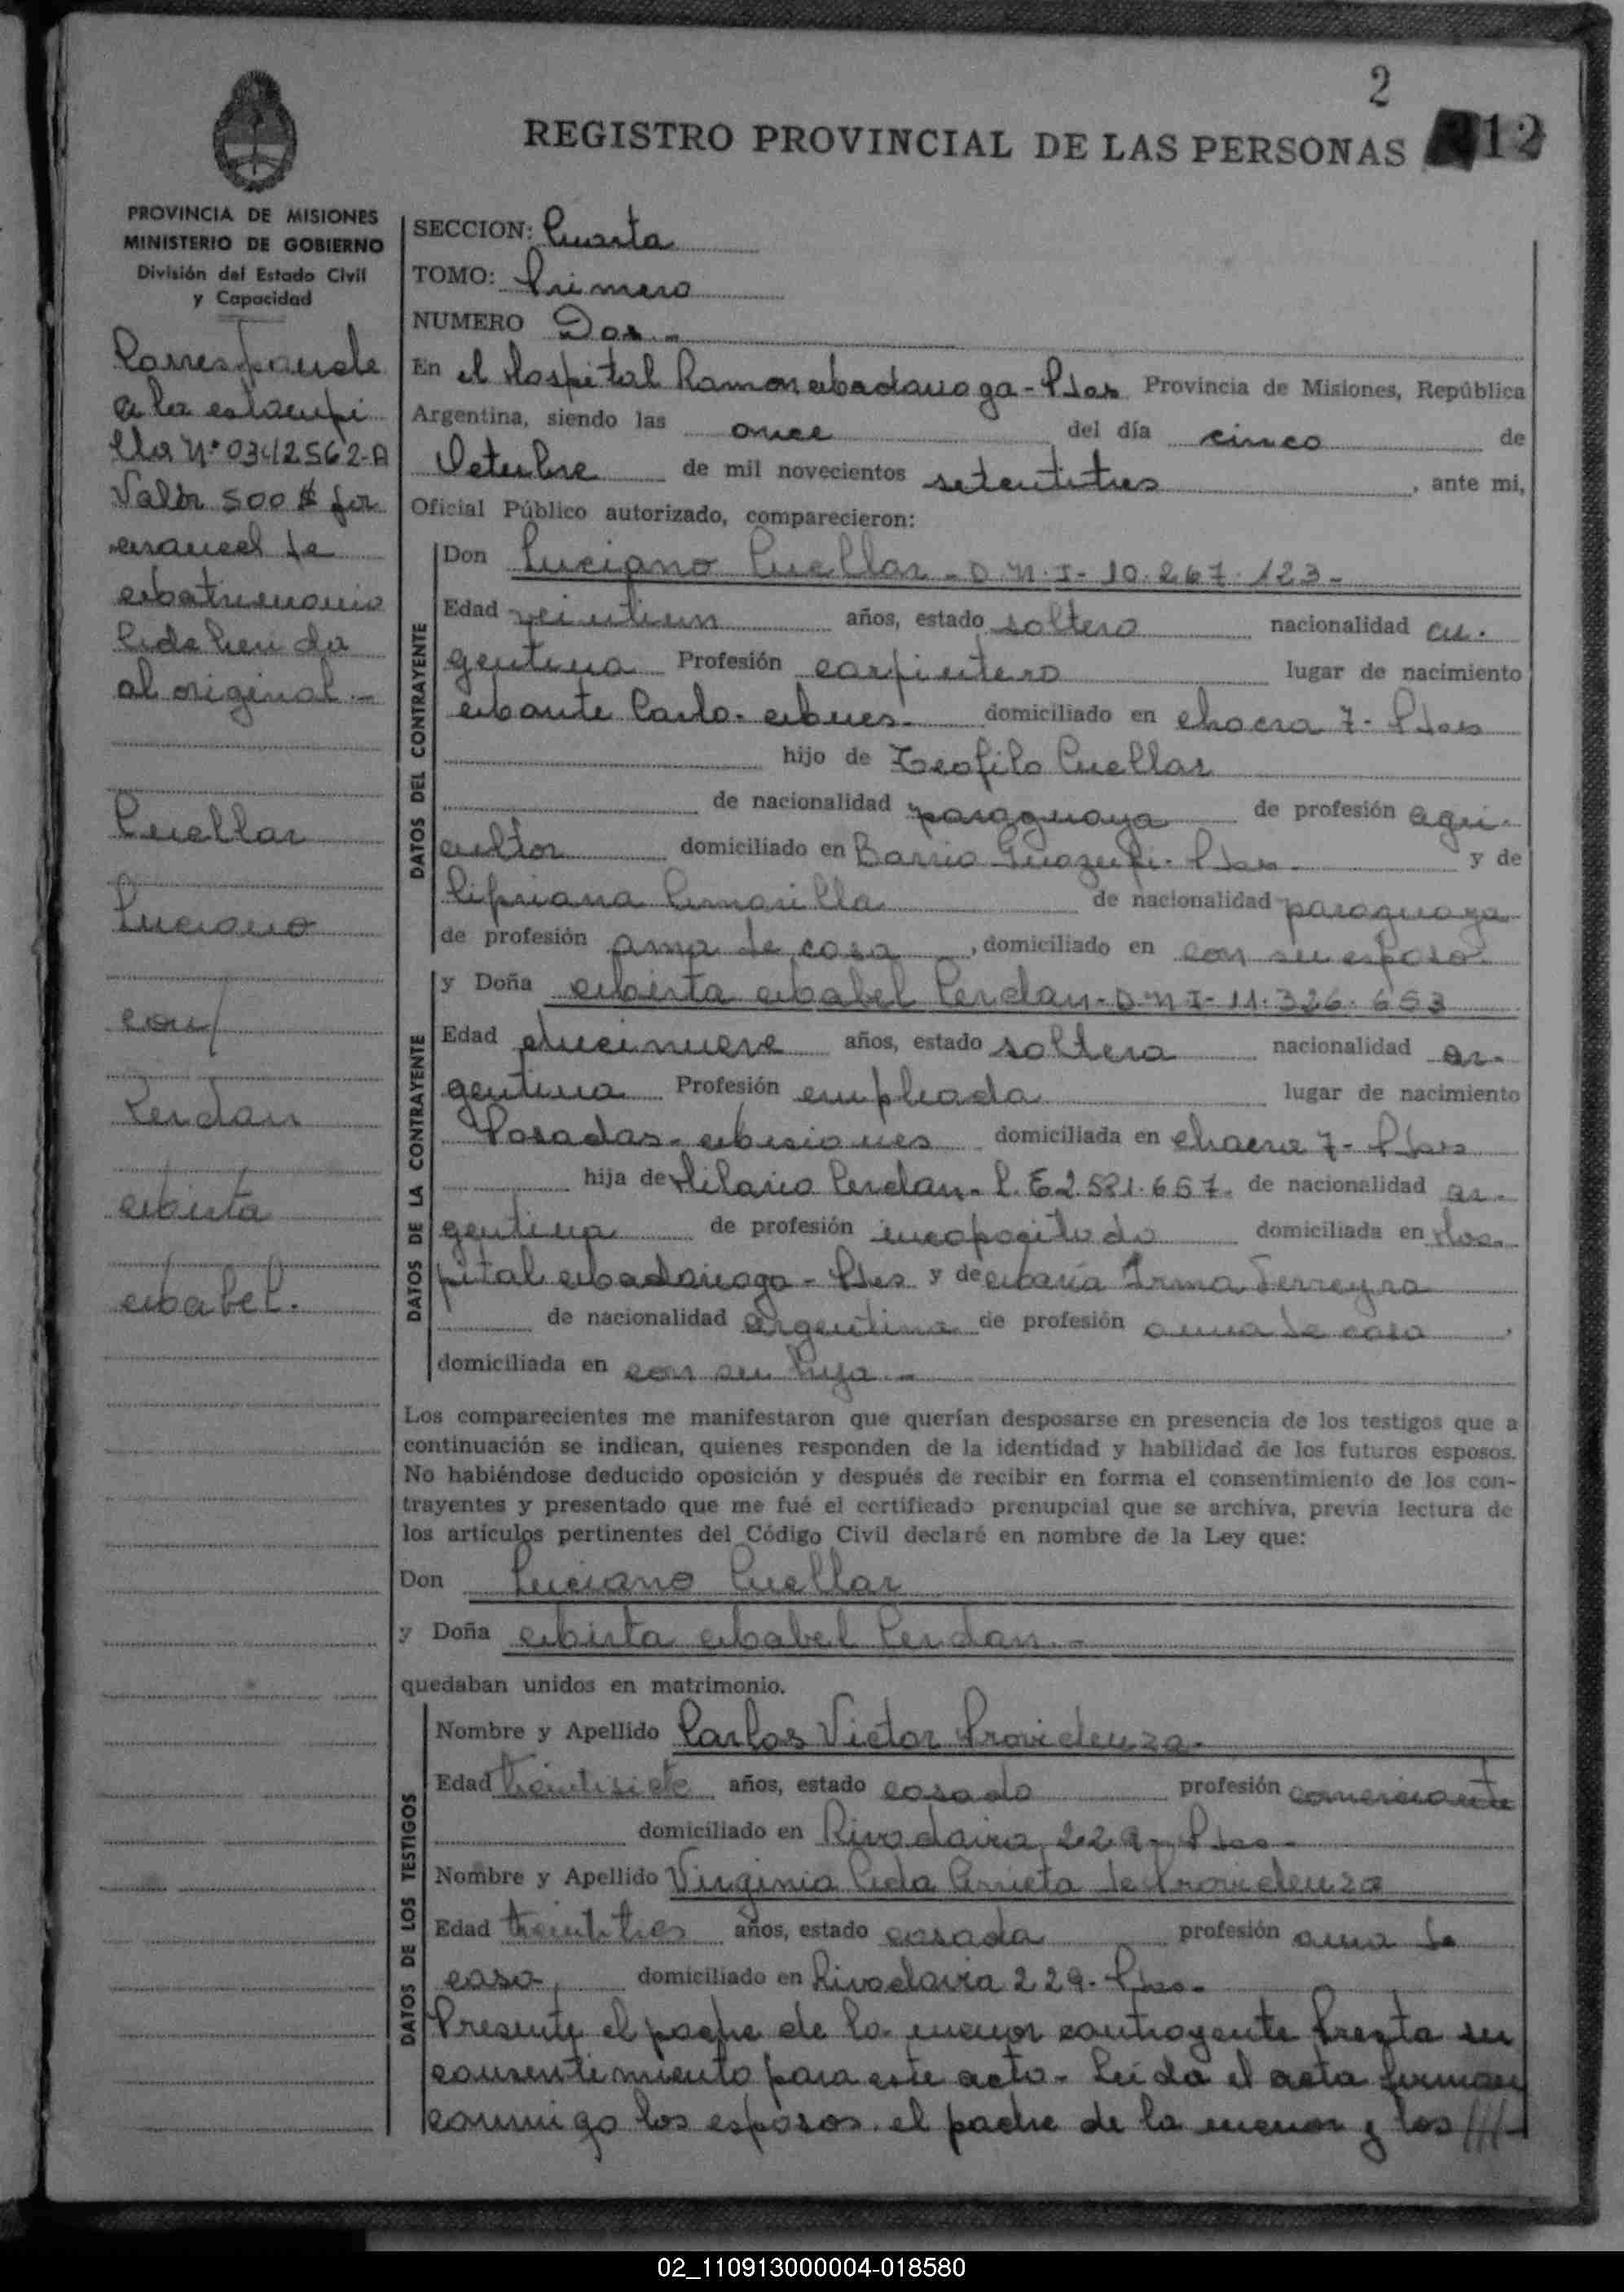 2
REGISTRO PROVINCIAL DE LAS PERSONAS 212
PROVINCIA DE MISIONES
MINISTERIO DE GOBIERNO
División del Estado Civil
y Capacidad
Corresponde
a la estampi
lla Nº 0342562-A
Valor 500 $ por
arancel de
Matrimonio
adeherida
al original.-
Cuellar
Luciano
con/
Cerdan
Mirta
Mabel.
SECCION: Cuarta
TOMO: Primero
NUMERO Dos.-
En el Hospital Ramon Madariaga - Pdas Provincia de Misiones, República
Argentina, siendo las once del día cinco de
Octubre de mil novecientos setentitres, ante mi,
Oficial Público autorizado, comparecieron:
DATOS DEL CONTRAYENTE
Don Luciano Cuellar - D.N.I- 10.267.123-
Edad veintiun años, estado soltero nacionalidad ar-
gentina Profesión carpintero lugar de nacimiento
Monte Carlo- Mnes. domiciliado en chacra 7- Pdas
hijo de Teofilo Cuellar
de nacionalidad paraguaya de profesión agri-
cultor domiciliado en Barrio Guazupi- Pdas y de
Cipriana Amarilla de nacionalidad paraguaya
de profesión ama de casa, domiciliado en con su esposo
DATOS DE LA CONTRAYENTE
y Doña Mirta Mabel Cerdan- D.N.I- 11.326.653
Edad diecinueve años, estado soltera nacionalidad ar-
gentina Profesión empleada lugar de nacimiento
Posadas- Misiones domiciliada en chacra 7- Pdas
hija de Hilario Cerdan- L.E 2.581.667. de nacionalidad ar-
gentina de profesión incapacitado domiciliada en Hos-
pital Madariaga - Pdas y de María Irma Ferreyra
de nacionalidad argentina de profesión ama de casa,
domiciliada en con su hija.-
Los comparecientes me manifestaron que querían desposarse en presencia de los testigos que a
continuación se indican, quienes responden de la identidad y habilidad de los futuros esposos.
No habiéndose deducido oposición y después de recibir en forma el consentimiento de los con-
trayentes y presentado que me fué el certificado prenupcial que se archiva, previa lectura de
los artículos pertinentes del Código Civil declaré en nombre de la Ley que:
Don Luciano Cuellar
y Doña Mirta Mabel Cerdan.-
quedaban unidos en matrimonio.
DATOS DE LOS TESTIGOS
Nombre y Apellido Carlos Victor Providenza-
Edad treintisiete años, estado casado profesión comerciante
domiciliado en Rivadavia 229- Pdas-
Nombre y Apellido Virginia Aida Arrieta de Providenza
Edad treintitres años, estado casada profesión ama de
casa, domiciliado en Rivadavia 229- Pdas-
Presente el padre de la menor contrayente presta su
consentimiento para este acto- Leida el acta firman
conmigo los esposos, el padre de la menor y los ///-
02_110913000004-018580